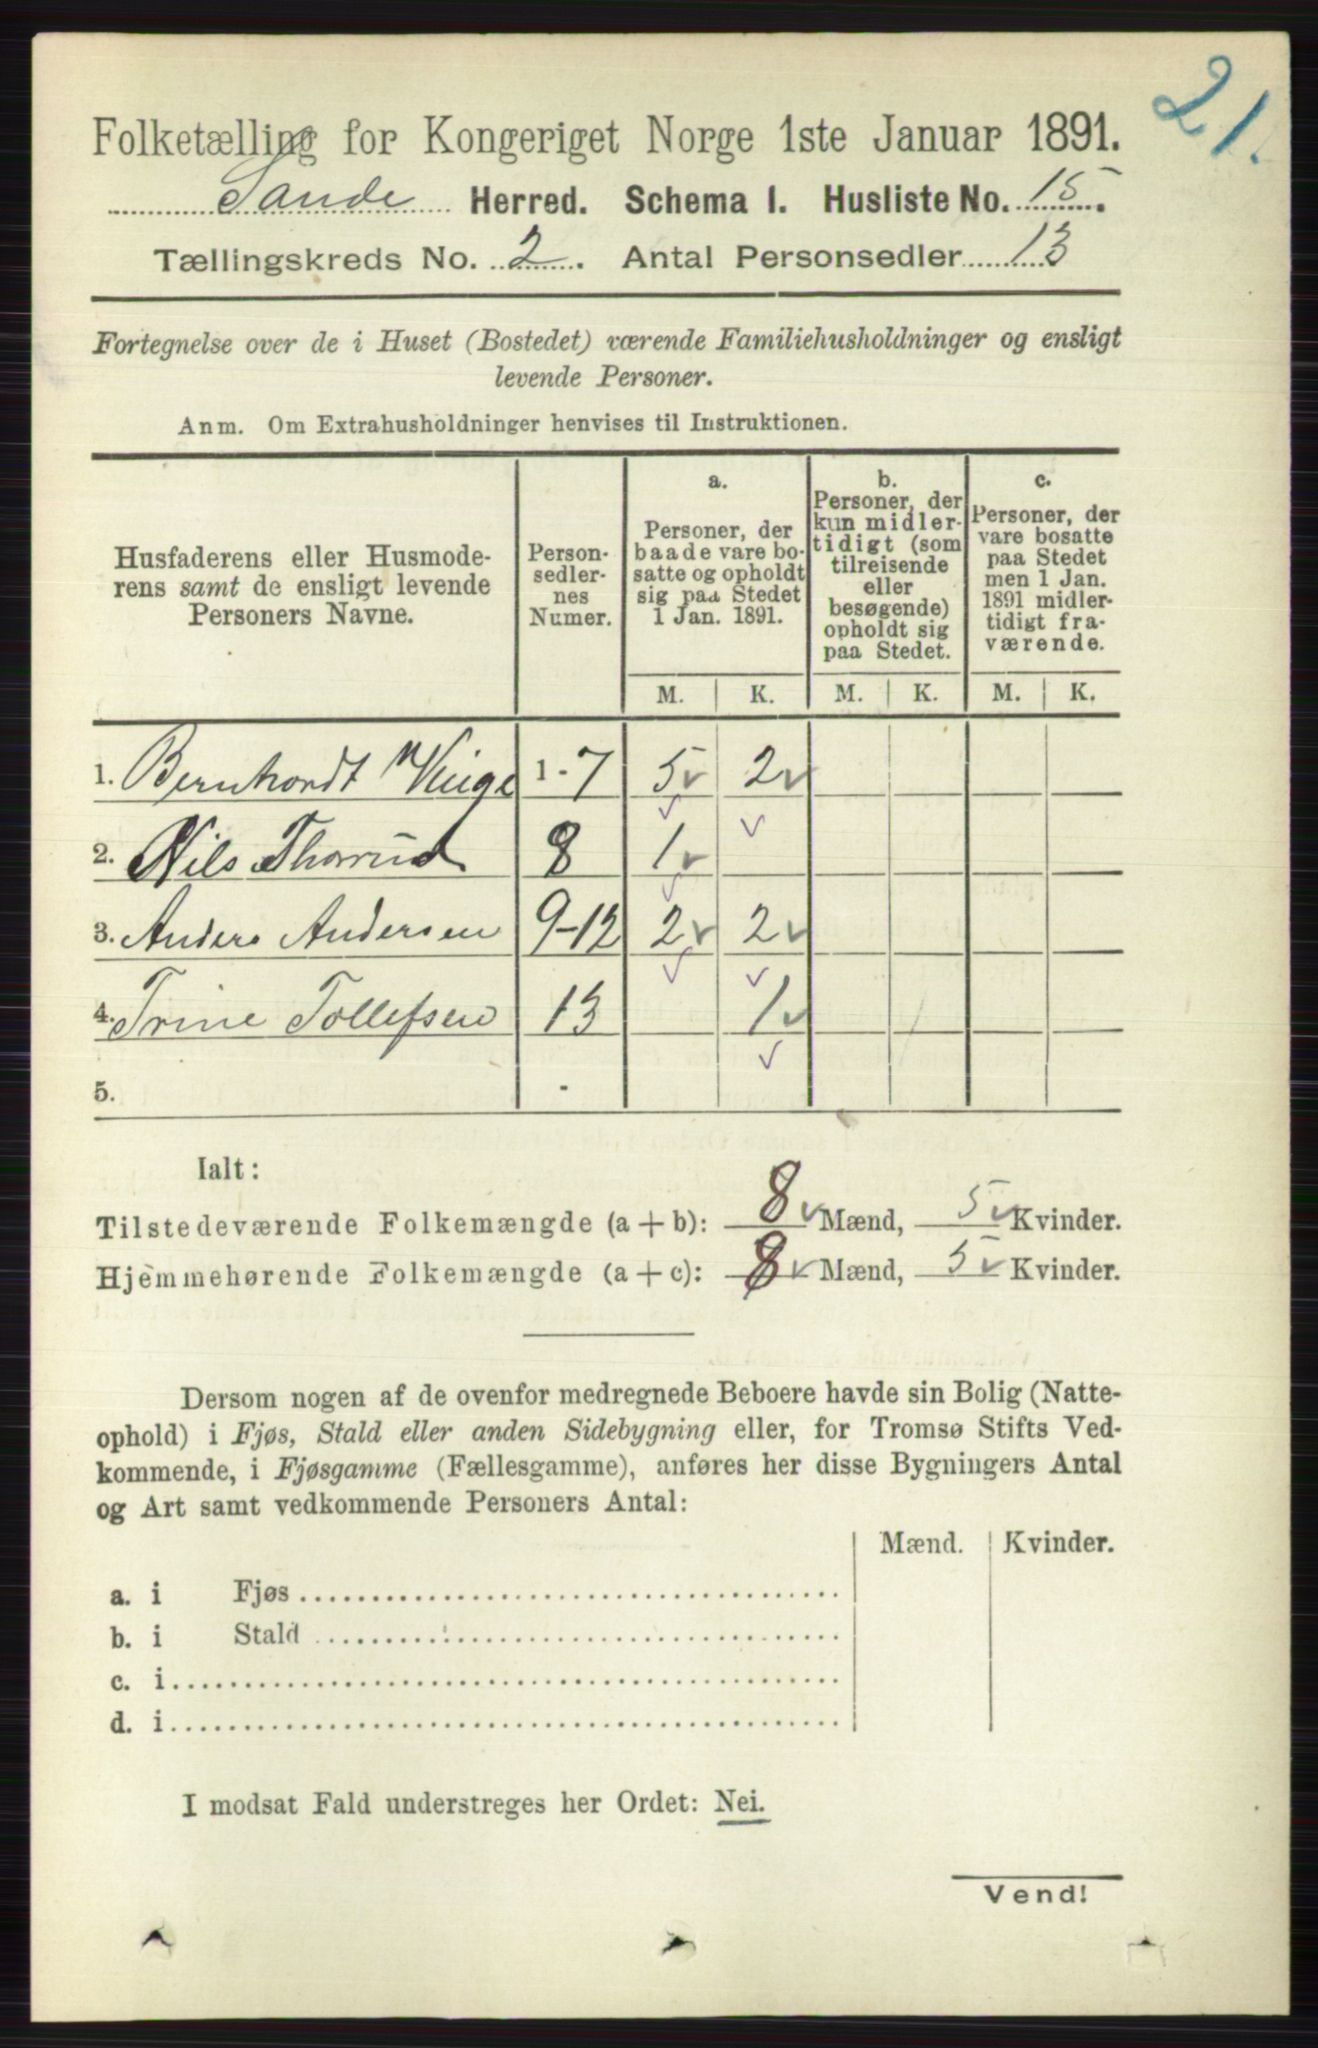 21.
Folketælling for Kongeriget Norge 1ste Januar 1891.
Sande Herred. Schema I. Husliste No. 15.
Tællingskreds No. 2. Antal Personsedler 13
Fortegnelse over de i Huset (Bostedet) værende Familiehusholdninger og ensligt
levende Personer.
Anm. Om Extrahusholdninger henvises til Instruktionen.
Husfaderens eller Husmode-
rens samt de ensligt levende
Personers Navne.
Person-
sedler-
nes
Numer.
a.
Personer, der
baade vare bo-
satte og opholdt
sig paa Stedet
1 Jan. 1891.
b.
Personer, der
kun midler-
tidigt (som
tilreisende
eller
besøgende)
opholdt sig
paa Stedet.
c.
Personer, der
vare bosatte
paa Stedet
men 1 Jan.
1891 midler-
tidigt fra-
værende.
M. K. M. K. M. K.
1. Bernhardt 1-7 5 2
2. Nils Thorrud 8 1
3. Anders Andersen 9-12 2 2
4. Trine Tollefsen 13 1
5. -
Ialt:
Tilstedeværende Folkemængde (a + b): 8 Mænd, 5 Kvinder.
Hjemmehørende Folkemængde (a + c): 8 Mænd, 5 Kvinder.
Dersom nogen af de ovenfor medregnede Beboere havde sin Bolig (Natte-
ophold) i Fjøs, Stald eller anden Sidebygning eller, for Tromsø Stifts Ved-
kommende, i Fjøsgamme (Fællesgamme), anføres her disse Bygningers Antal
og Art samt vedkommende Personers Antal:
Mænd. Kvinder.
a. i Fjøs
b. i Stald
c. i
d. i
I modsat Fald understreges her Ordet: Nei.
Vend!